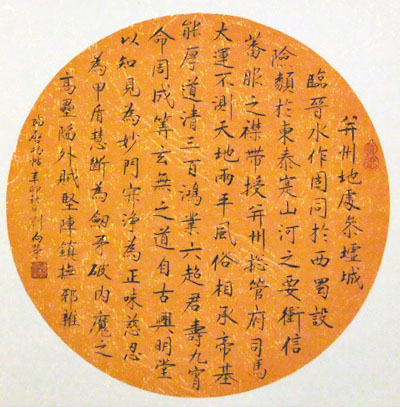 并州地處參墟城
臨晉水作固同於西蜀設
險類於東秦寔山河之要衝信
蕃服之襟帶授并州總管府司馬
太運不測天地兩平風俗相承帝基
能厚道清三百鴻業六超君壽九霄
命周成等玄無之道自古興明堂
以知見為妙門寂淨為正味慈忍
為甲盾慧斷為劍矛破内魔之
高壘陷外賊堅陣鎮撫邪雜
辛卯秋劉向榮